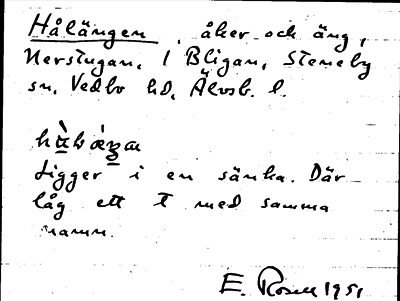 Hålängen, åker och äng,
Nerstugan, 1 Bligan, Steneby
sn, Vedbo hd, Älvsb. l.
Ligger i en sänka. Där
låg ett t med samma
namn.
E. Rosell 1951